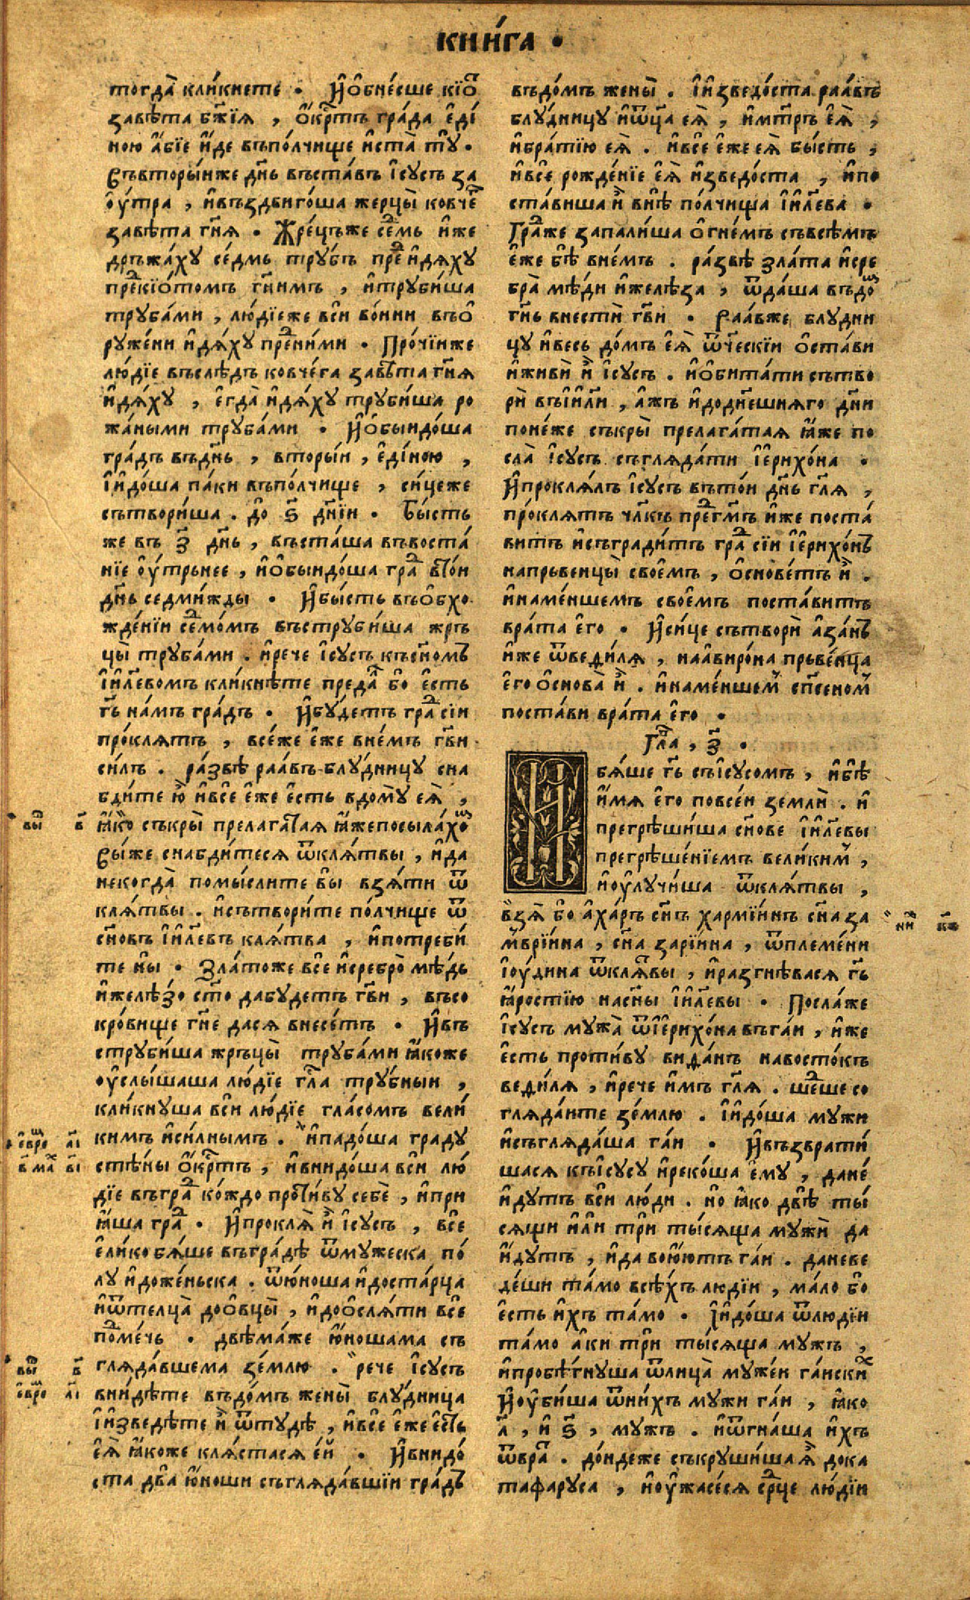 КНИ́ГА ·
тогда̀ кли́кнете · И҆ѻ҆бне́сше кїѡ҃
завѣ́та бж҃їѧ , ѻ҆́крⷭ҇тъ гра́да є҆ді́
ною а҆́бїе и҆́де въпо́лчище и҆ста̀ тꙋ̀ ·
Въвторы́иже дн҃ь въста́въ і҆сꙋ́съ за
оу҆́тра , и҆въздвиго́ша жерцы̀ ковче́г
завѣ́та гн҃ѧ · Жре́цъже се́дмь и҆́же
дръжа́хꙋ се́дмь трꙋ́бъ преⷣ и҆дѧ́хꙋ
преⷣкїѡ́томъ гн҃имъ , и҆трꙋби́ша
трꙋба́ми , лю́дїеже всѝ во́ини въѻ҆
рꙋже́ни и҆дѧ́хꙋ преⷣни́ми · Про́чїиже
лю́дїе въслѣ́дъ ковче́га завѣ́та гн҃ѧ
и҆дѧ́хꙋ , є҆гда̀ и҆дѧ́хꙋ трꙋби́ша ро
жа́ными трꙋба́ми · И҆ѻ҆быидо́ша
гра́дъ въдн҃ь , вторы́и , є҆ді́ною ,
і҆идо́ша па́ки въпо́лчище , си́цеже
сътвори́ша · до ѕ҃ дн҃їи · Бы́сть
же въ з҃ дн҃ь , въста́ша въвоста́
нїе оу҆́трьнее , и҆ѻ҆быидо́ша граⷣ вто́и
дн҃ь седми́жды · И҆бы́сть въѻ҆бхо
жде́нїи седмо́мъ въстрꙋби́ша жръ
цы̀ трꙋба́ми · и҆рече і҆сꙋ́съ късн҃омъ
і҆и҃левомъ кликнѣ́те преда́л бо є҆́сть
гь҃ на́мъ гра́дъ · И҆бꙋ́детъ граⷣ сїи
про́клѧтъ , все́же є҆́же вне́мъ гв҃и
си́лъ · ра́звѣ раа́въ блꙋдни́цꙋ сна
бди́те ю҆̀ и҆всѐ є҆́же є҆́сть вдо́мꙋ є҆ѧ̀ ,
ꙗ҆́ко съкры̀ прелага́таѧ ꙗ҆́жепосыла́хоⷨ
Вы́же снабди́тесѧ ѿклѧ́твы , и҆да
некогда̀ помы́слите вы̀ взѧ́ти ѿ
клѧ́твы · и҆сътвори́те по́лчище ѿ
сн҃овъ і҆и҃левъ клѧ́тва , и҆потреби́
те ны̀ · Зла́тоже всѐ и҆сребро̀ мѣ́дь
и҆желѣ́зо ст҃о дабꙋ́детъ гв҃и , въсо
кро́вище гн҃е дасѧ внесе́тъ · И҆въ
стрꙋби́ша жръцы̀ трꙋба́ми ꙗ҆́коже
оу҆слы́шаша лю́дїе гл҃а трꙋ́бныи ,
кли́кнꙋша всѝ лю́дїе гла́сомъ вели́
кимъ и҆си́лнымъ · и҆падо́ша градꙋ
стѣ́ны ѻ҆́крⷭ҇тъ , и҆внидо́ша всѝ лю́
дїе въграⷣ ко́ждо проти́вꙋ себѐ , и҆прїи
ꙗ҆́ша граⷣ · И҆проклѧ̀ и҆̀ і҆сꙋ́съ , всѐ
є҆ли́ко бѧ́ше въгра́дѣ ѿмꙋжеска по́
лꙋ и҆доже́ньска · ѿю́ноша и҆доста́рца
и҆ѿтелца̀ доѻ҆вцы̀ , и҆доѻ҆слѧ́ти всѐ
поⷣме́чь · двѣ́маже ю҆́ношама съ
глѧда́вшема зе́млю · рече і҆сꙋ́съ
внидѣ́те въдо́мъ жены̀ блꙋ́дница
і҆изведѣ́те и҆̀ ѿтꙋ́дѣ , и҆всѐ є҆́же є҆́сть
є҆ѧ̀ ꙗ҆́коже клѧ́стасѧ є҆́й · И҆внидо́
ста два̀ ю҆́ноши съглѧда́вшїи гра́дъ
въдо́мъ жены̀ · І҆изведо́ста раа́въ
блꙋдни́цꙋ и҆ѿц҃а є҆ѧ̀ , и҆мтр҃ь є҆ѧ̀ ,
и҆бра́тїю є҆ѧ̀ · и҆всѐ є҆́же є҆ѧ̀ бы́сть ,
и҆всѐ рожде́нїе є҆ѧ̀ и҆зведо́ста , и҆по
ста́виша и҆̀ внѣ̀ по́лчища і҆и҃лева ·
Граⷣже запали́ша ѻ҆гне́мъ съвсѣ́мъ
є҆́же бѣ̀ вне́мъ · ра́звѣ зла́та и҆сре
бра̀ мѣ́ди и҆желѣ́за , ѿда́ша въдо́ⷨ
гн҃ь внестѝ гв҃и · Раа́вже блꙋдни
цꙋ и҆ве́сь до́мъ є҆ѧ̀ ѿч҃ескїи ѻ҆ста́ви
и҆живѝ и҆̀ і҆сꙋ́съ · и҆ѻ҆бита́ти сътво
рѝ въі҆и҃ли , а҆́жъ и҆додн҃ешнѧго дн҃и
поне́же съкры̀ прелага́таѧ ꙗ҆́же по
сла̀ і҆сꙋ́съ съглѧда́ти і҆ерихо́на ·
И҆проклѧ́лъ і҆сꙋ́съ въто́и дн҃ь гл҃ѧ ,
про́клѧтъ чл҃къ преⷣгм҃ъ и҆́же поста́
витъ и҆съгради́тъ граⷣ сїи і҆ерихо́нъ
напрьвенцы̀ свое́мъ , ѻ҆снове́тъ и҆̀ ·
и҆наме́ншемъ свое́мъ поста́витъ
врата̀ є҆го · И҆си́це сътворѝ а҆за́нъ
и҆́же ѿведи́лѧ , наавиро́на прьве́нца
є҆го ѻ҆снова̀ и҆̀ · и҆наме́ншем сп҃сеном
поста́ви врата̀ є҆го ·
Гла̀ , з҃ ·
И҆бѧ́ше гь҃ съі҆сꙋ́сомъ , и҆бѣ̀
и҆́мѧ є҆го повсе́и землѝ · и҆
прегрѣши́ша сн҃ове і҆и҃левы
прегрѣше́нїемъ вели́ким ,
и҆оу҆лꙋчи́ша ѿклѧ́твы ,
взѧ̀ бо а҆ха́ръ сн҃ъ харми́инъ сн҃а за
мвріина , сн҃а зарїина , ѿпле́мени
і҆оу́дина ѿклѧ́твы , и҆разгнѣ́васѧ гь҃
ꙗ҆́ростїю насн҃ы і҆и҃левы · Посла́же
і҆сꙋ́съ мꙋжа̀ ѿі҆ерихо́на въга́и , и҆́же
є҆́сть проти́вꙋ вида́нъ навосто́къ
веди́лѧ , и҆рече и҆́мъ гл҃ѧ · шеⷣше со
глѧда́ите зе́млю · І҆идо́ша мꙋ́жи
и҆съглѧда́ша га́и · И҆възврати́
шасѧ къі҆сꙋ́сꙋ и҆реко́ша є҆мꙋ̀ , дане́
и҆дꙋтъ всѝ лю́ди · но ꙗ҆́ко двѣ̀ ты́
сѧщи и҆́ли трѝ ты́сѧща мꙋжѝ да
и҆́дꙋтъ , и҆да вою́ютъ га́и · даневе
де́ши та́мо всѣ́хъ людїи , ма́ло бо
є҆́сть и҆́хъ та́мо · І҆идо́ша ѿлюде́и
та́мо а҆́ки трѝ ты́сѧща мꙋ́жъ ,
и҆пробѣ́гнꙋша ѿлица̀ мꙋже́и га́искиⷯ
И҆оу҆би́ша ѿни́хъ мꙋ́жи га́и , ꙗ҆́ко
л҃ , и҆ ѕ҃ , мꙋ́жъ · и҆ѿгна́ша и҆́хъ
ѿвраⷮ · до́ндеже съкрꙋши́ша ѧ҆̀ дока
тафа́рꙋса , и҆оу҆жасе́сѧ срⷣце лю́дїи